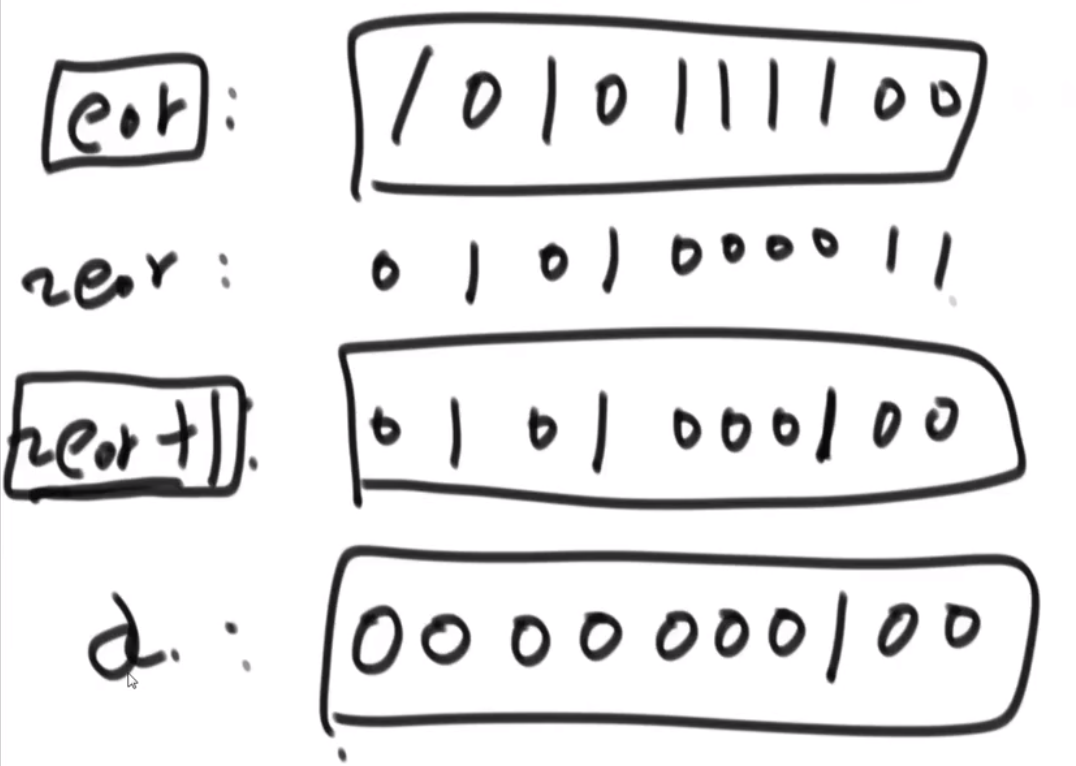 eor: 1010111100
~eor: 0101000011
~eor+1: 0101000100
d.: 0000000100